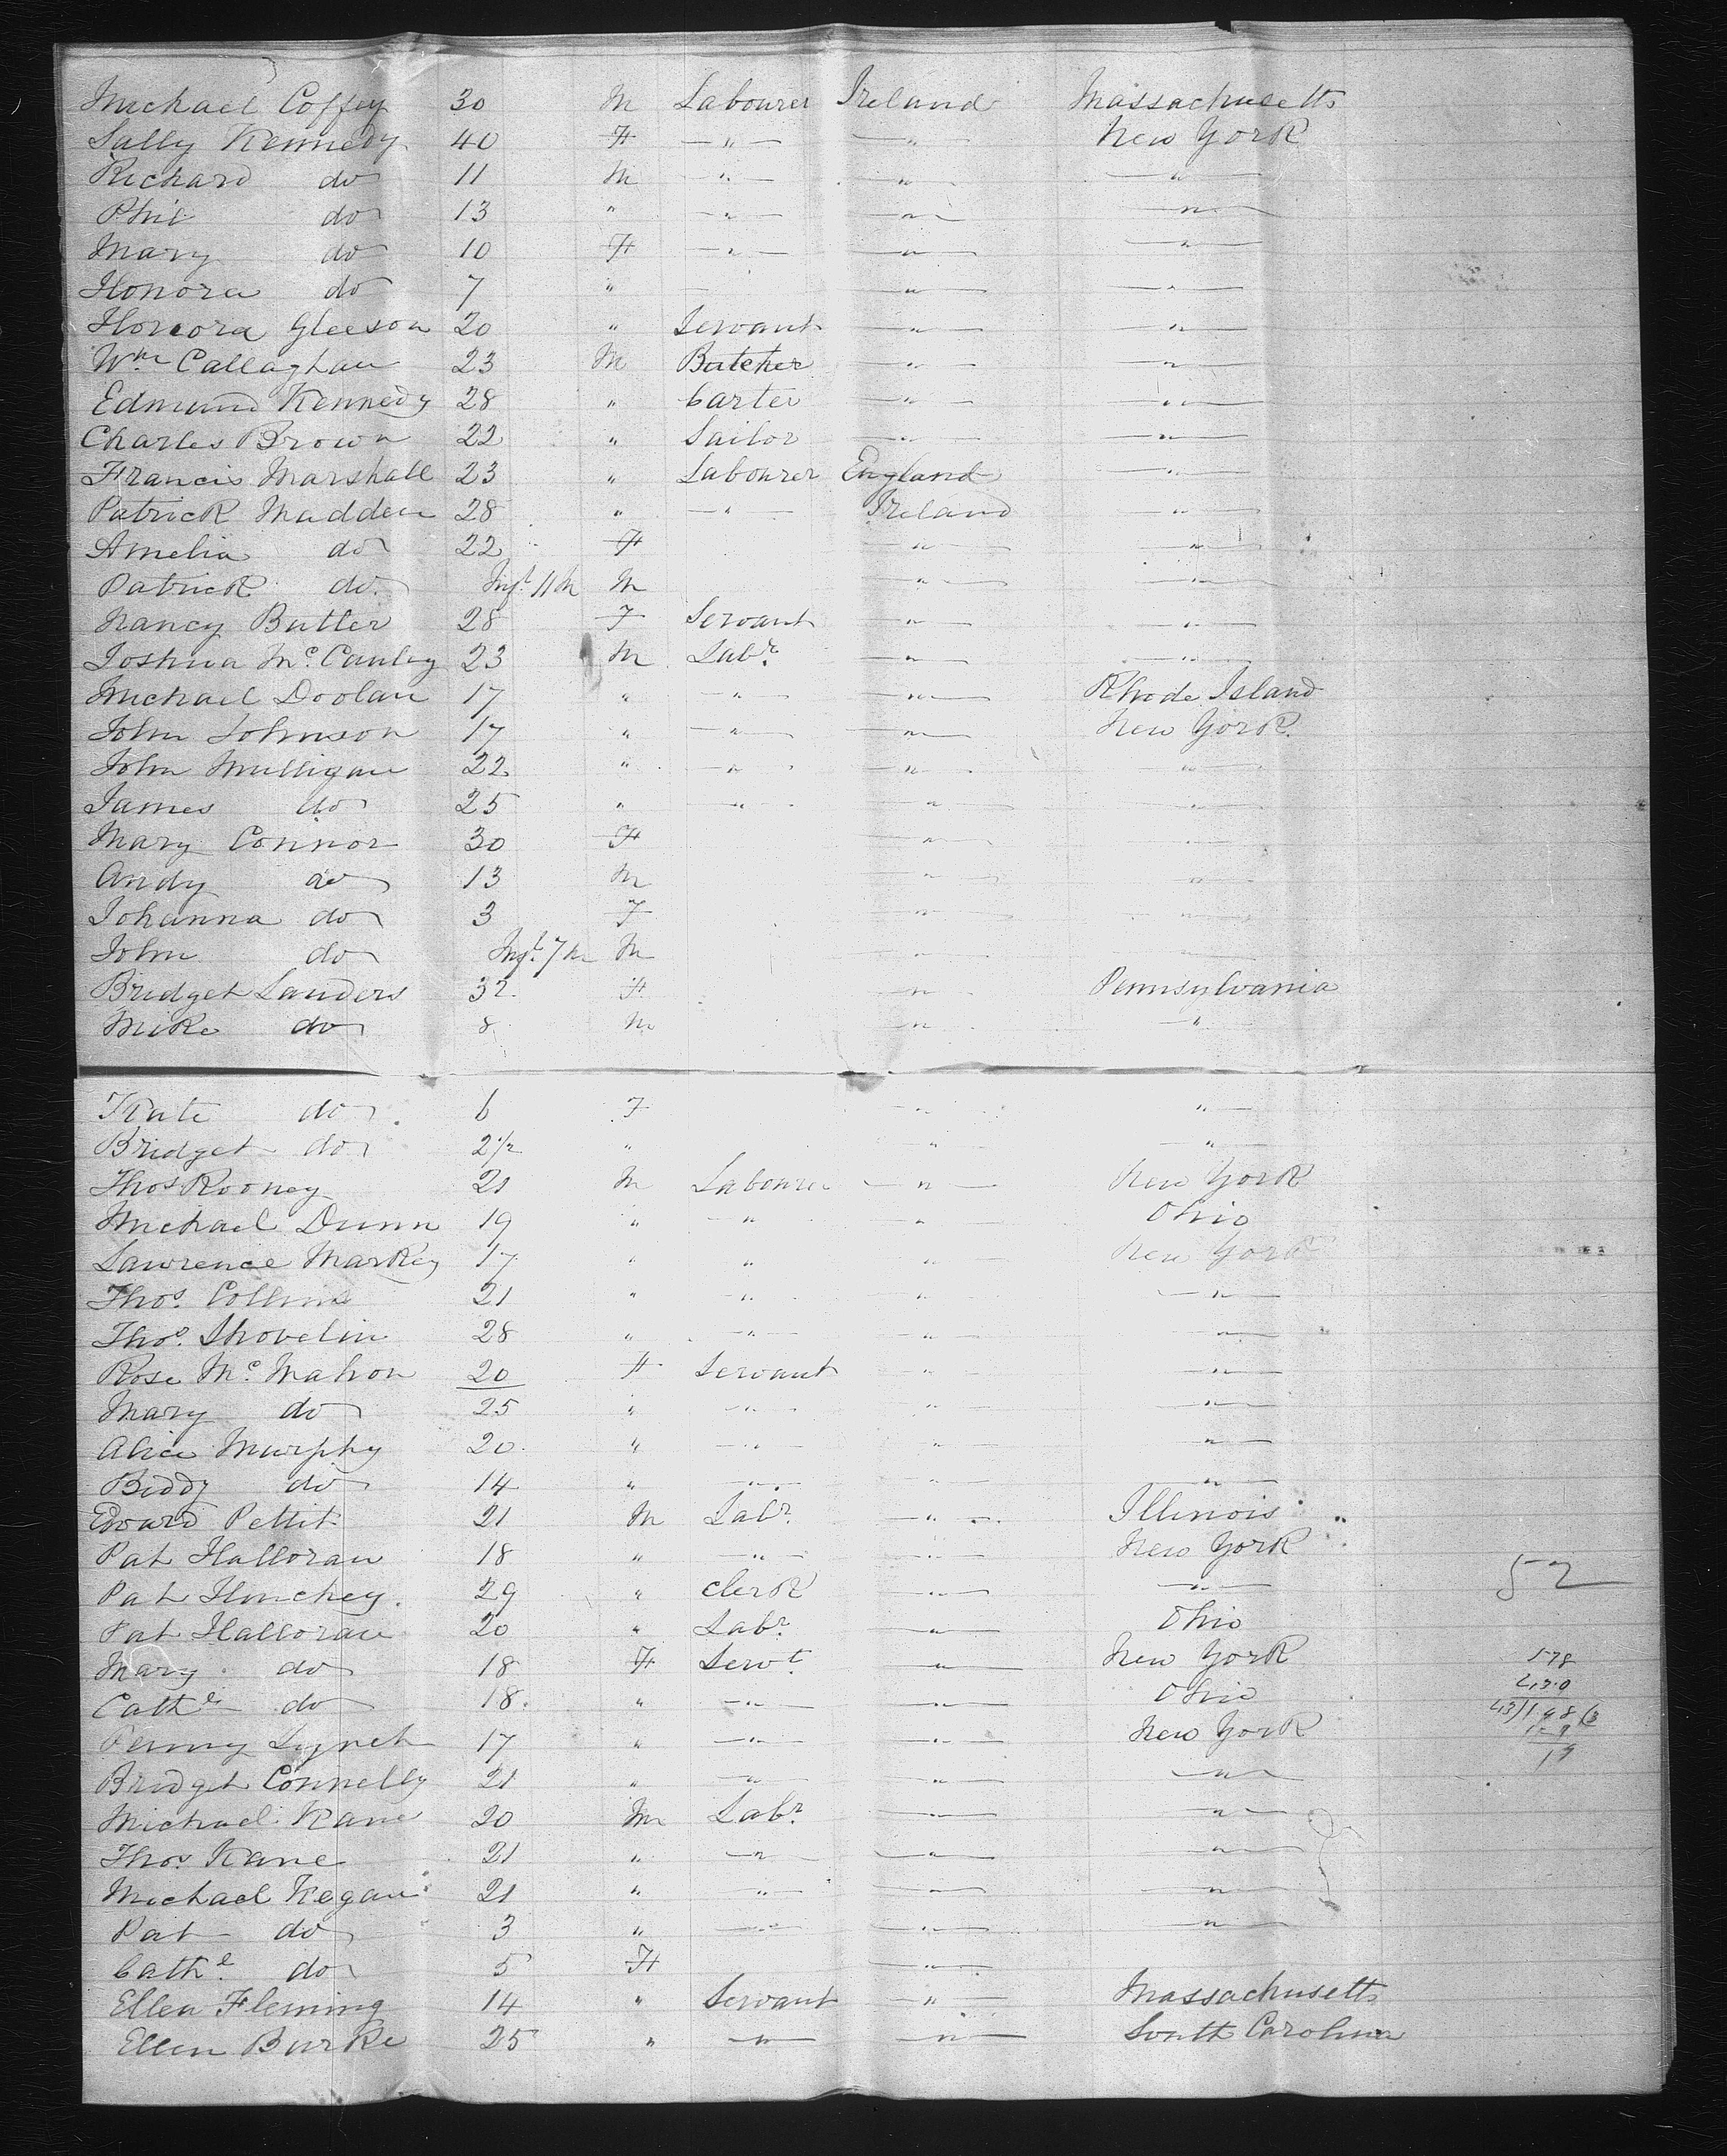 Michael Coffey 30 M Labourer Ireland Massachusetts
Sally Kennedy 40 F — " — — " — New York
Richard do 11 M — " — — " — — " —
Phil do 13 " — " — — " — — " —
Mary do 10 F — " — — " — — " —
Honora do 7 " — — " — — " —
Honora Gleeson 20 " Servant — " — — " —
Wm Callaghan 23 M Butcher — " — — " —
Edmund Kennedy 28 " Carter — " — — " —
Charles Brown 22 " Sailor — " — — " —
Francis Marshall 23 " Labourer England — " —
Patrick Madden 28 " — " — Ireland — " —
Amelia do 22 F — " — — " —
Patrick do Inft 11 M M — " — — " —
Nancy Butler 28 F Servant — " — — " —
Joshua McCauley 23 M Labr — " — — " —
Michael Doolan 17 " — " — — " — Rhode Island
John Johnson 17 " — " — — " — New York
John Mulligan 22 " — " — — " — — " —
James do 25 " — " — — " — — " —
Mary Connor 30 F — " — — " —
Andy do 13 M — " — — " —
Johanna do 3 F — " — — " —
John do Inft 7 M M — " — — " —
Bridget Landers 32 F — " — Pennsylvania
Mike do 8 M — " — — " —
Kate do 6 F — " — — " —
Bridget do 2 1/2 " — " — — " —
Thos Rooney 21 M Labourer — " — New York
Michael Dunn 19 " — " — " — Ohio
Lawrence Markey 17 " " — " — New York
Thos. Collins 21 " — " — — " — — " —
Thos. Shovelin 28 " — " — — " — — " —
Rose McMahon 20 F Servant — " — — " —
Mary do 25 " — " — — " — — " —
Alice Murphy 20 " — " — " — — " —
Biddy do 14 " — " — — " — — " —
Edward Pettit 21 M Labr — " — Illinois "
Pat Halloran 18 " — " — — " — New York
Pat Honchey 29 " Clerk — " — — " — 52
Pat Halloran 20 " Labr — " — Ohio
Mary do 18 F Servt — " — New York 578
Cathe do 18 " — " — — " — Ohio 430
Penny Lynch 17 " — " — — " — New York 43)148(3
Bridget Connelly 21 " — " — — " — — " — 19
Michael Kane 20 M Labr — " — — " —
Thos Kane 21 " — " — — " — — " —
Michael Kegan 21 " — " — — " — — " —
Pat do 3 " — " — — " — — " —
Cathe do 5 F — " —
Ellen Fleming 14 " Servant — " — Massachusetts
Ellen Burke 25 " — " — — " — South Carolina